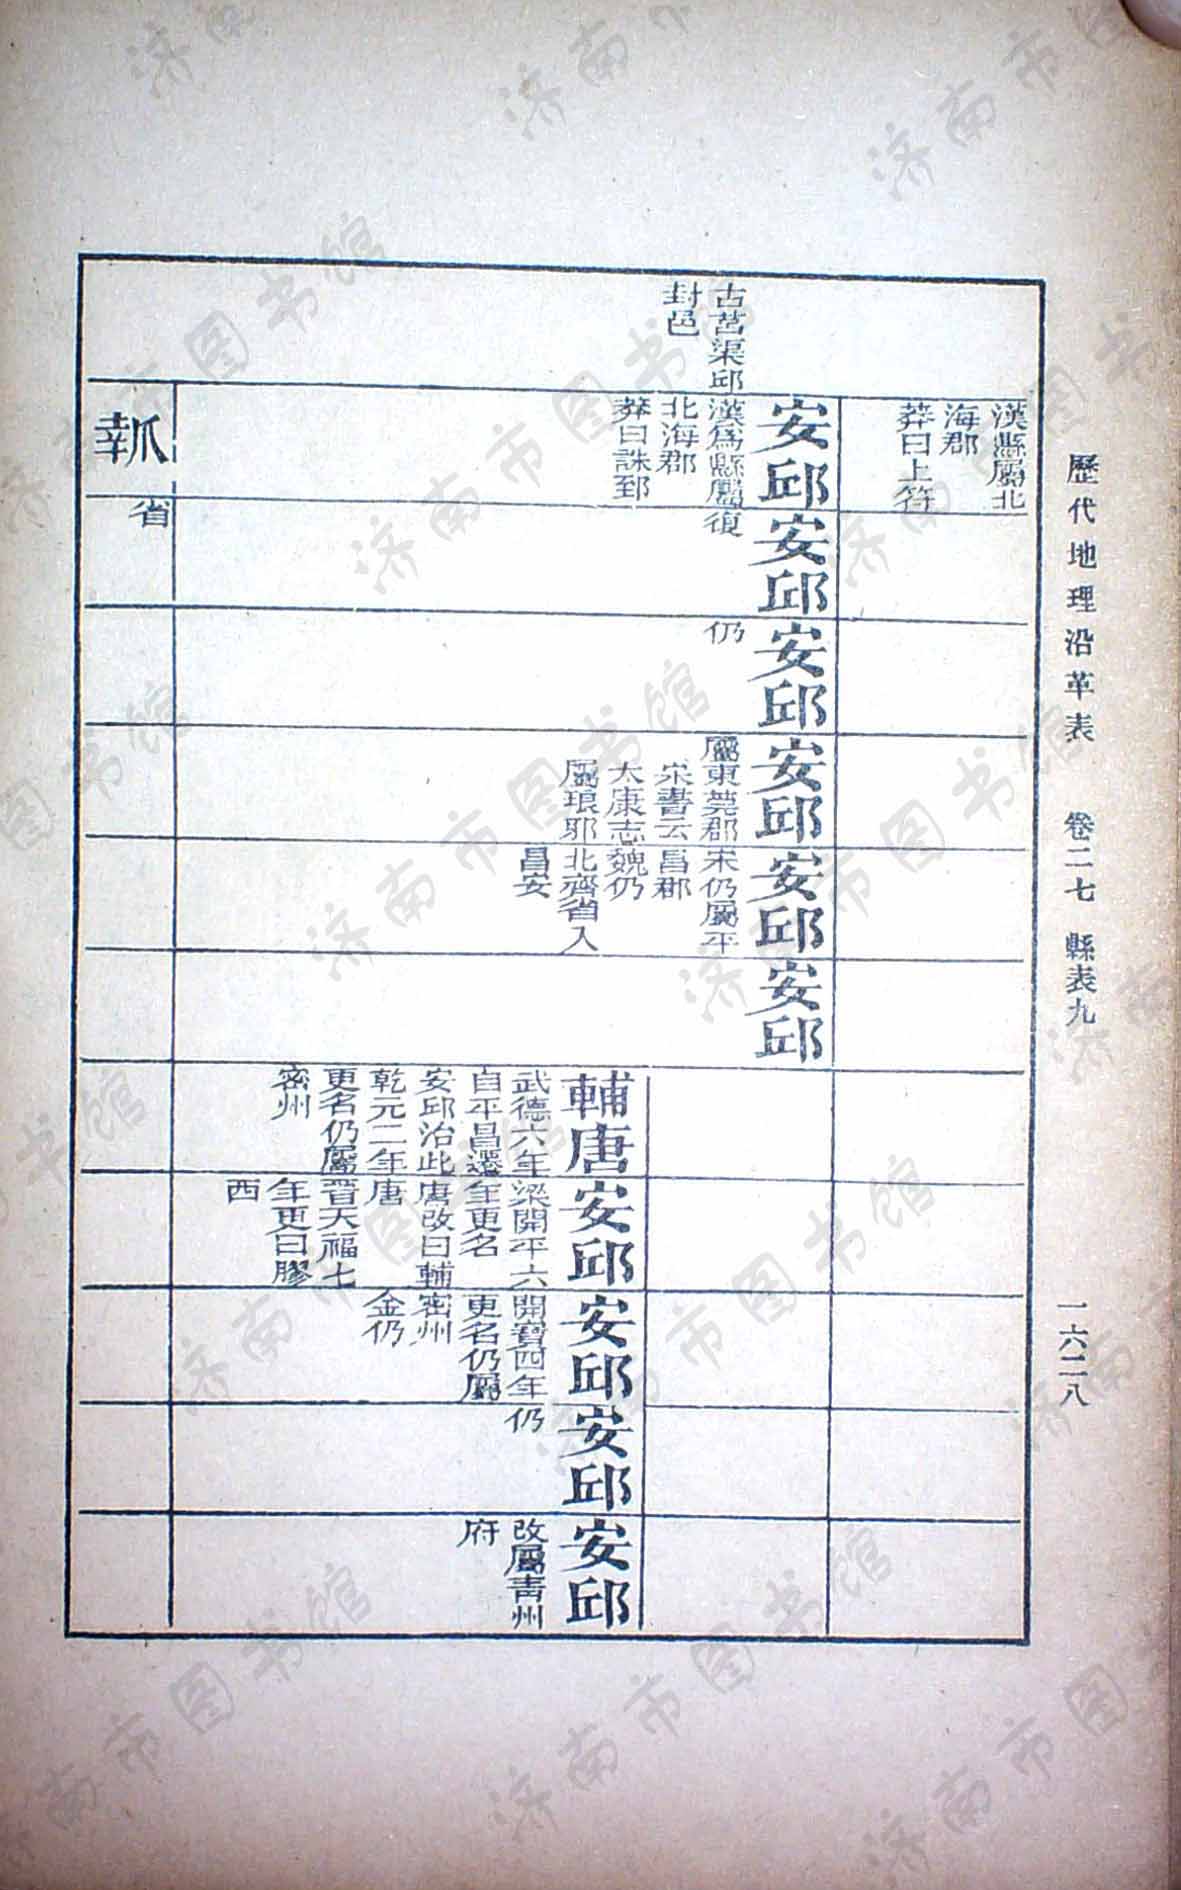 歷代地理沿革表　卷二七　縣表九　一六二八
漢縣屬北
海郡
莽曰上符
古莒渠邱
封邑
安邱
漢爲縣屬
北海郡
莽曰誅郅
安邱
復
安邱
仍
安邱
屬東莞郡
宋書云
太康志
屬琅邪
安邱
宋仍屬平
昌郡
魏仍
北齊省入
昌安
安邱
輔唐
武德六年
自平昌遷
安邱治此
乾元二年
更名仍屬
密州
安邱
梁開平六
年更名
唐改曰輔
唐
晉天福七
年更曰膠
西
安邱
開寶四年
更名仍屬
密州
金仍
安邱
仍
安邱
改屬青州
府
省
济南市图书馆